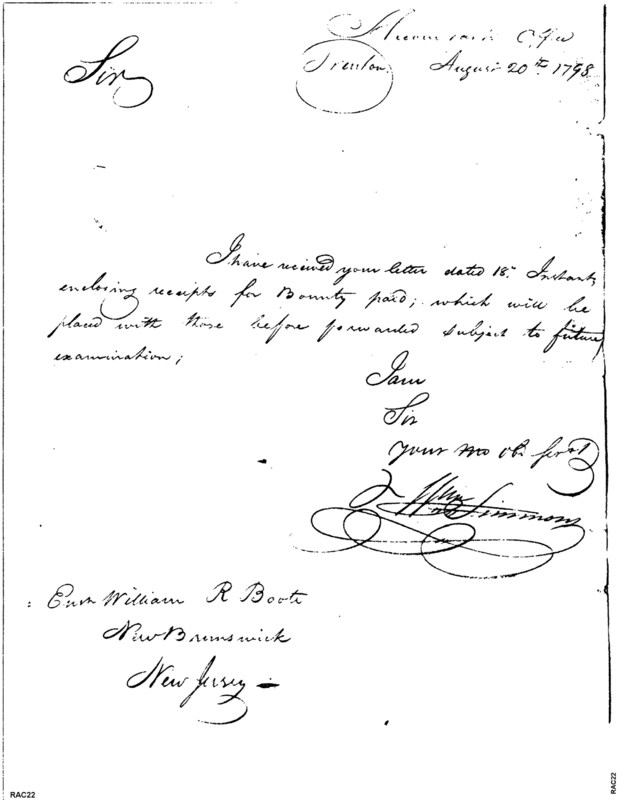 Accountants Office
Sir
Trenton August 20th 1798
I have received your letter dated 18th Instant,
enclosing receipts for Bounty paid; which will be
placed with those before forwarded subject to future
examination;
I am
Sir
your mo ob. servt
Wm Simmons
Ensn William R Boote
New Brunswick
New Jersey
RAC22
RAC22